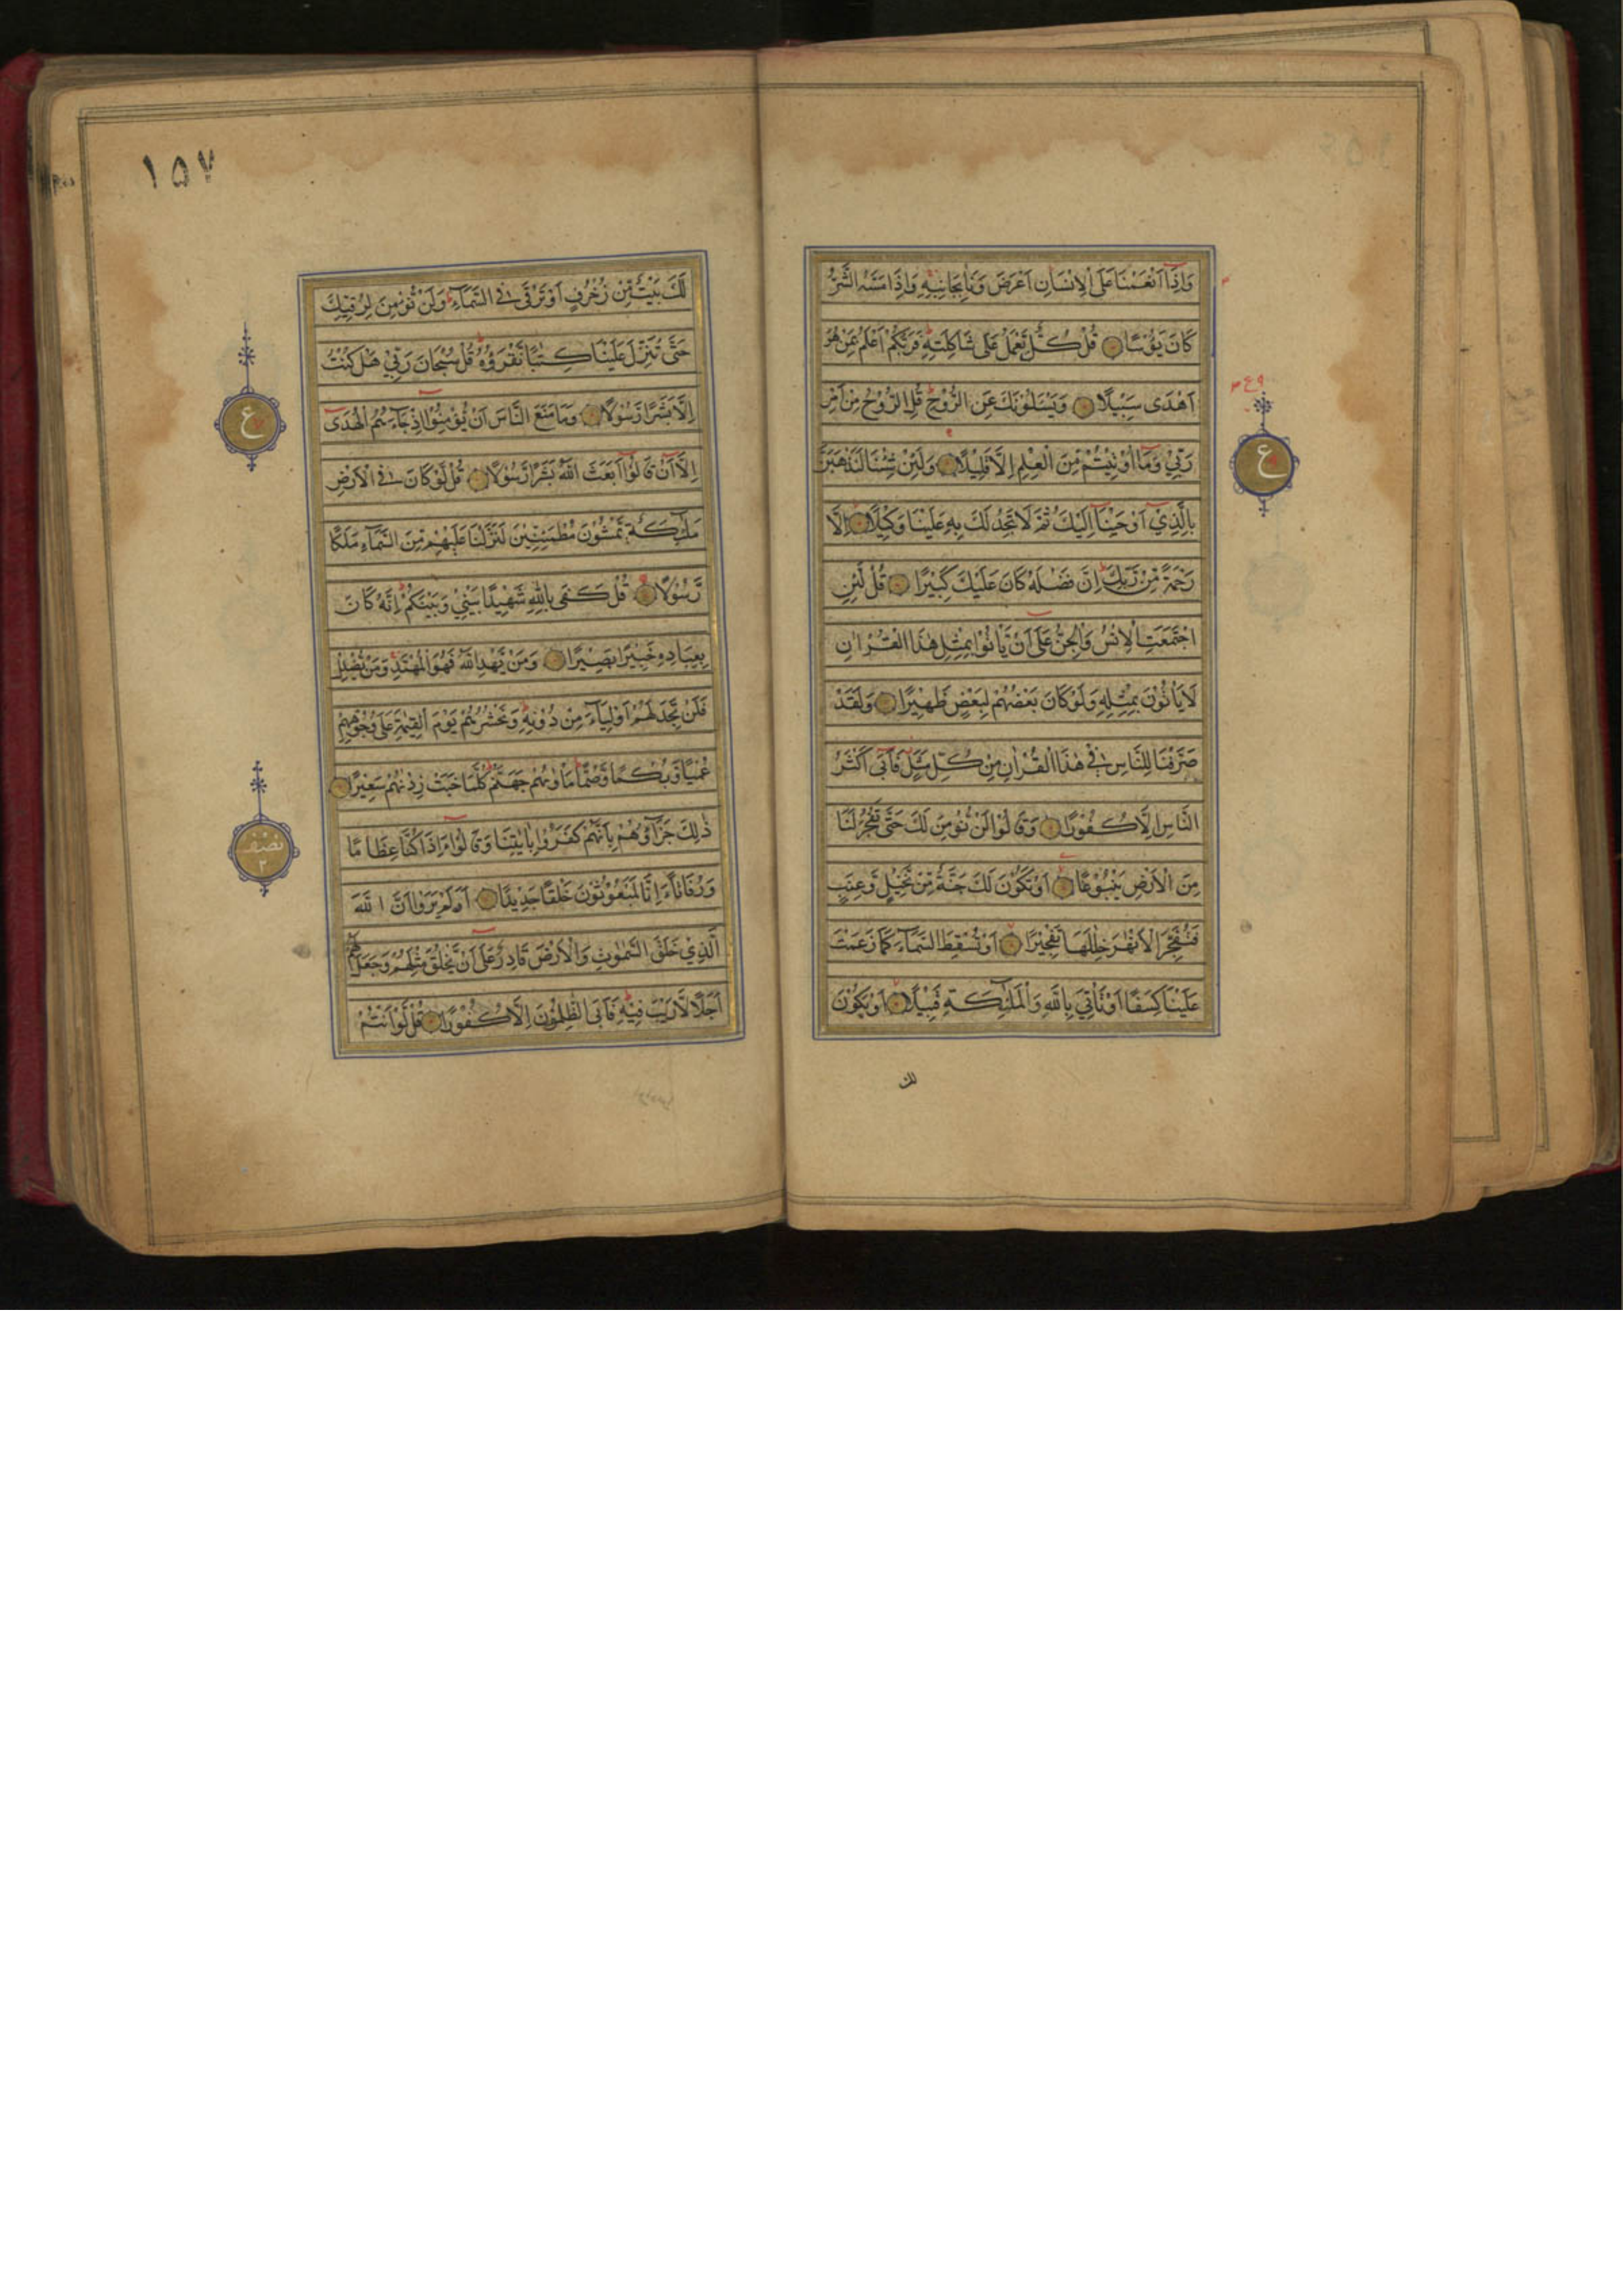 وَاِذَآ اَنْعَمْنَا عَلَى الْاِنْسَانِ اَعْرَضَ وَنَاٰ بِجَانِبِهٖ وَاِذَا مَسَّهُ الشَّرُّ
كَانَ يَؤُسًا قُلْ كُلٌّ يَّعْمَلُ عَلٰى شَاكِلَتِهٖ فَرَبُّكُمْ اَعْلَمُ بِمَنْ هُوَ
اَهْدٰى سَبِيْلًا وَيَسْـَٔلُوْنَكَ عَنِ الرُّوْحِ قُلِ الرُّوْحُ مِنْ اَمْرِ
رَبِّيْ وَمَآ اُوْتِيْتُمْ مِّنَ الْعِلْمِ اِلَّا قَلِيْلًا وَلَئِنْ شِئْنَا لَنَذْهَبَنَّ
بِالَّذِيْٓ اَوْحَيْنَآ اِلَيْكَ ثُمَّ لَا تَجِدُ لَكَ بِهٖ عَلَيْنَا وَكِيْلًا اِلَّا
رَحْمَةً مِّنْ رَّبِّكَ اِنَّ فَضْلَهٗ كَانَ عَلَيْكَ كَبِيْرًا قُلْ لَّئِنِ
اجْتَمَعَتِ الْاِنْسُ وَالْجِنُّ عَلٰٓى اَنْ يَّاْتُوْا بِمِثْلِ هٰذَا الْقُرْاٰنِ
لَا يَاْتُوْنَ بِمِثْلِهٖ وَلَوْ كَانَ بَعْضُهُمْ لِبَعْضٍ ظَهِيْرًا وَلَقَدْ
صَرَّفْنَا لِلنَّاسِ فِيْ هٰذَا الْقُرْاٰنِ مِنْ كُلِّ مَثَلٍ فَاَبٰٓى اَكْثَرُ
النَّاسِ اِلَّا كُفُوْرًا وَقَالُوْا لَنْ نُّؤْمِنَ لَكَ حَتّٰى تَفْجُرَ لَنَا
مِنَ الْاَرْضِ يَنْبُوْعًا اَوْ تَكُوْنَ لَكَ جَنَّةٌ مِّنْ نَّخِيْلٍ وَّعِنَبٍ
فَتُفَجِّرَ الْاَنْهٰرَ خِلٰلَهَا تَفْجِيْرًا اَوْ تُسْقِطَ السَّمَآءَ كَمَا زَعَمْتَ
عَلَيْنَا كِسَفًا اَوْ تَاْتِيَ بِاللّٰهِ وَالْمَلٰٓئِكَةِ قَبِيْلًا اَوْ يَكُوْنَ
لك
ع
١٥٧
لَكَ بَيْتٌ مِّنْ زُخْرُفٍ اَوْ تَرْقٰى فِي السَّمَآءِ وَلَنْ نُّؤْمِنَ لِرُقِيِّكَ
حَتّٰى تُنَزِّلَ عَلَيْنَا كِتٰبًا نَّقْرَؤُهٗ قُلْ سُبْحَانَ رَبِّيْ هَلْ كُنْتُ
اِلَّا بَشَرًا رَّسُوْلًا وَمَا مَنَعَ النَّاسَ اَنْ يُّؤْمِنُوْٓا اِذْ جَآءَهُمُ الْهُدٰٓى
اِلَّآ اَنْ قَالُوْٓا اَبَعَثَ اللّٰهُ بَشَرًا رَّسُوْلًا قُلْ لَّوْ كَانَ فِي الْاَرْضِ
مَلٰٓئِكَةٌ يَّمْشُوْنَ مُطْمَئِنِّيْنَ لَنَزَّلْنَا عَلَيْهِمْ مِّنَ السَّمَآءِ مَلَكًا
رَّسُوْلًا قُلْ كَفٰى بِاللّٰهِ شَهِيْدًا بَيْنِيْ وَبَيْنَكُمْ اِنَّهٗ كَانَ
بِعِبَادِهٖ خَبِيْرًا بَصِيْرًا وَمَنْ يَّهْدِ اللّٰهُ فَهُوَ الْمُهْتَدِ وَمَنْ يُّضْلِلْ
فَلَنْ تَجِدَ لَهُمْ اَوْلِيَآءَ مِنْ دُوْنِهٖ وَنَحْشُرُهُمْ يَوْمَ الْقِيٰمَةِ عَلٰى وُجُوْهِهِمْ
عُمْيًا وَّبُكْمًا وَّصُمًّا مَاْوٰىهُمْ جَهَنَّمُ كُلَّمَا خَبَتْ زِدْنٰهُمْ سَعِيْرًا
ذٰلِكَ جَزَآؤُهُمْ بِاَنَّهُمْ كَفَرُوْا بِاٰيٰتِنَا وَقَالُوْٓا ءَاِذَا كُنَّا عِظَامًا
وَّرُفَاتًا ءَاِنَّا لَمَبْعُوْثُوْنَ خَلْقًا جَدِيْدًا اَوَلَمْ يَرَوْا اَنَّ اللّٰهَ
الَّذِيْ خَلَقَ السَّمٰوٰتِ وَالْاَرْضَ قَادِرٌ عَلٰٓى اَنْ يَّخْلُقَ مِثْلَهُمْ وَجَعَلَ لَهُمْ
اَجَلًا لَّا رَيْبَ فِيْهِ فَاَبَى الظّٰلِمُوْنَ اِلَّا كُفُوْرًا قُلْ لَّوْ اَنْتُمْ
ع
نصف
٢